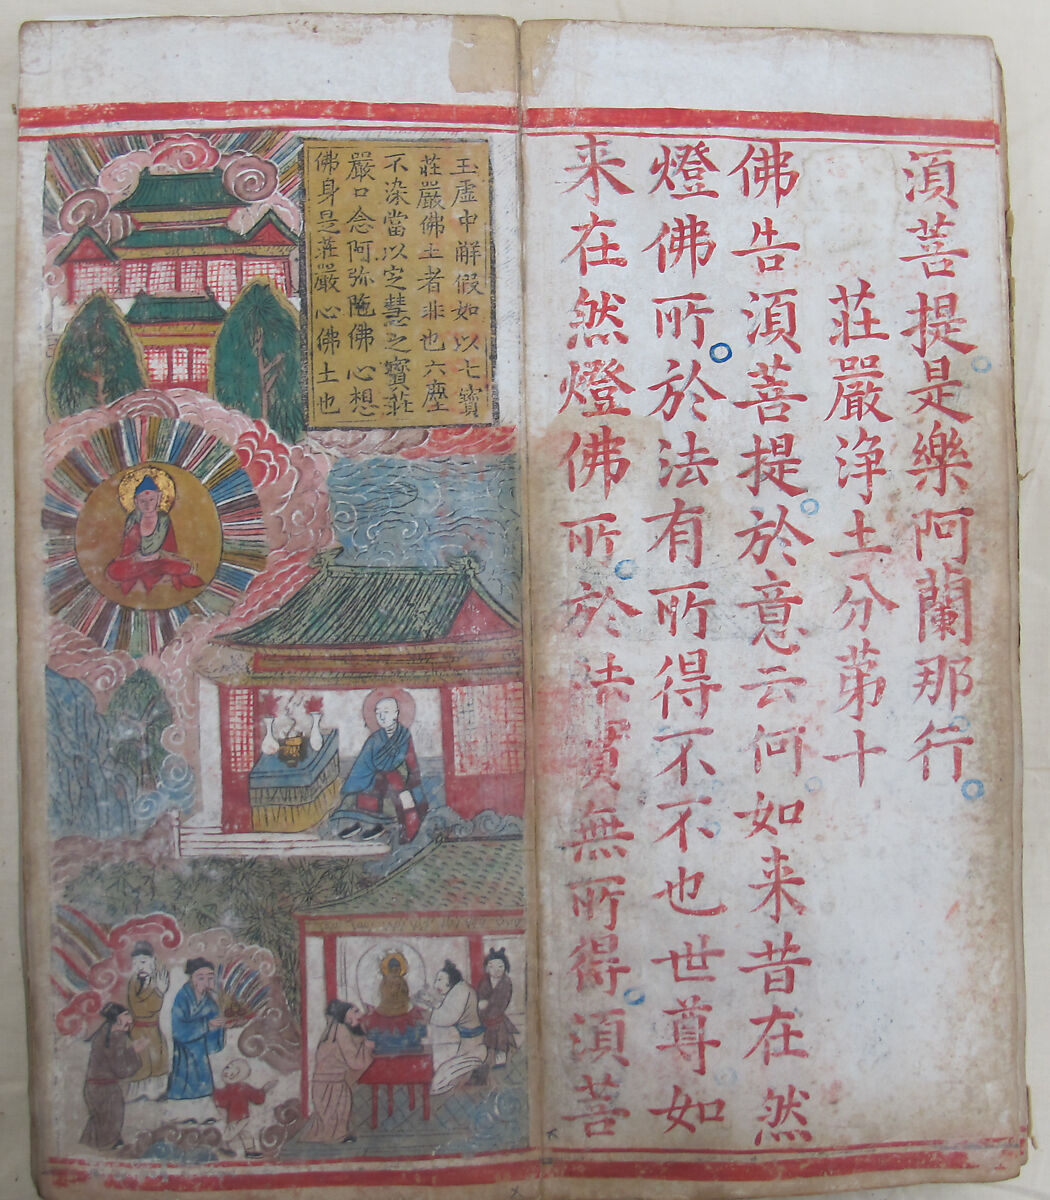 湏菩提是樂阿蘭那行
莊嚴浄土分苐十
佛告湏菩提於意云何如来昔在然
燈佛所於法有所得不不也世尊如
来在然燈佛所於法實無所得湏菩
玉虛中解假如以七寶
莊嚴佛土者非也六塵
不染當以定慧之寶莊
嚴口念阿弥陁佛心想
佛身是莊嚴心佛土也